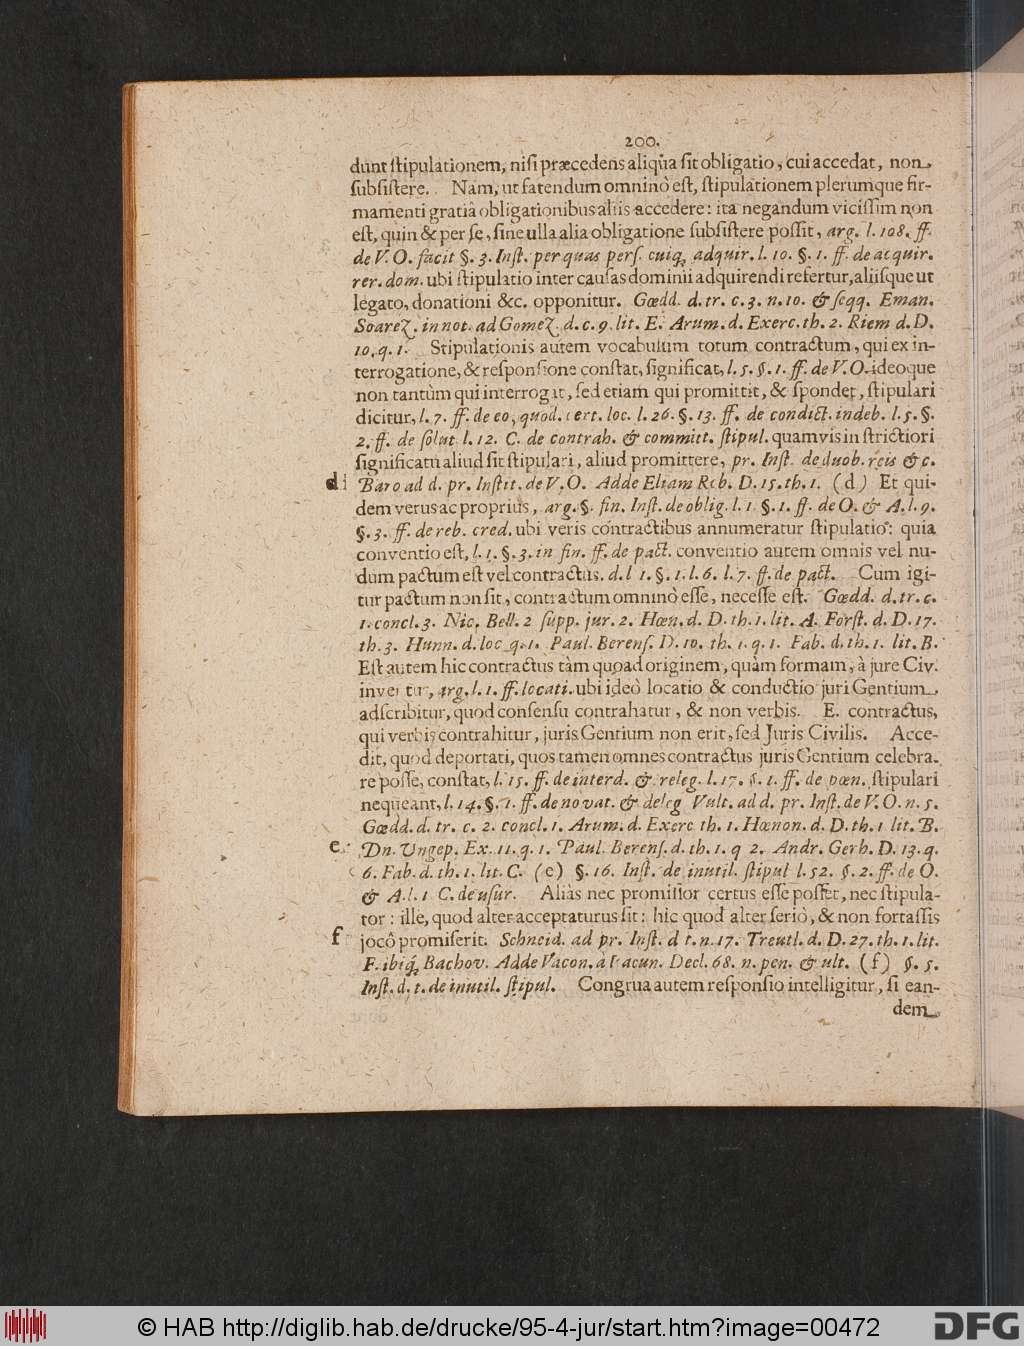 200.
dunt stipulationem, nisi præcedens aliqua sit obligatio, cui accedat, non
subsistere. Nam, ut fatendum omninò est, stipulationem plerumque fir-
mamenti gratiâ obligationibus aliis accedere: ita negandum vicissim non
est, quin & per se, sine ulla alia obligatione subsistere possit, arg. l. 108. ff.
de V. O. facit §. 3. Inst. per quas pers. cuiq; adquir. l. 10. §. 1. ff. de acquir.
rer. dom. ubi stipulatio inter causas dominii adquirendi refertur, aliisque ut
legato, donationi &c. opponitur. Gœdd. d. tr. c. 3. n. 10. & seqq. Eman.
Soarez. in not. ad Gomez. d. c. 9. lit. E. Arum. d. Exerc. th. 2. Riem d. D.
10. q. 1. Stipulationis autem vocabulum totum contractum, qui ex in-
terrogatione, & responsione constat, significat, l. 5. §. 1. ff. de V. O. ideoque
non tantùm qui interrogat, sed etiam qui promittit, & spondet, stipulari
dicitur, l. 7. ff. de eo, quod. cert. loc. l. 26. §. 13. ff. de condict. indeb. l. 5. §.
2. ff. de solut l. 12. C. de contrah. & committ. stipul. quamvis in strictiori
significatu aliud sit stipulari, aliud promittere, pr. Inst. de duob. reis &c.
d Baro ad d. pr. Instit. de V. O. Adde Eliam Reb. D. 15. th. 1. (d) Et qui-
dem verus ac proprius, arg. §. fin. Inst. de oblig. l. 1 §. 1. ff. de O. & A. l. 9.
§. 3. ff. de reb. cred. ubi veris contractibus annumeratur stipulatio: quia
conventio est, l. 1. §. 3. in fin. ff. de pact. conventio autem omnis vel nu-
dum pactum est vel contractus. d. l 1. §. 1. l. 6. l. 7. ff. de pact. Cum igi-
tur pactum non sit, contractum omninò esse, necesse est. Gœdd. d. tr. c.
1. concl. 3. Nic. Bell. 2 supp. jur. 2. Hœn. d. D. th. 1. lit. A. Forst. d. D. 17.
th. 3. Hunn. d. loc q. 1. Paul. Berens. D. 10. th. 1. q. 1. Fab. d. th. 1. lit. B.
Est autem hic contractus tàm quoad originem, quàm formam, à jure Civ.
inventur, arg. l. 1. ff. locati. ubi ideò locatio & conductio juri Gentium
adscribitur, quod consensu contrahatur, & non verbis. E. contractus,
qui verbis contrahitur, juris Gentium non erit, sed Juris Civilis. Acce-
dit, quod deportati, quos tamen omnes contractus juris Gentium celebra-
re posse, constat, l. 15. ff. de interd. & releg. l. 17. §. 1. ff. de pœn. stipulari
nequeant, l. 14. §. 1. ff. de novat. & deleg Vult. ad d. pr. Inst. de V. O. n. 5.
Gœdd. d. tr. c. 2. concl. 1. Arum. d. Exerc th. 1. Hœnon. d. D. th. 1 lit. B.
e Dn. Ungep. Ex. 11. q. 1. Paul. Berens. d. th. 1. q 2. Andr. Gerh. D. 13. q.
6. Fab. d. th. 1. lit. C. (e) §. 16. Inst. de inutil. stipul l. 52. §. 2. ff. de O.
& A. l. 1 C. de usur. Aliàs nec promissor certus esse posset, nec stipula-
tor: ille, quod alter accepturus sit: hic quod alter seriò, & non fortassis
f jocô promiserit. Schneid. ad pr. Inst. d t. n. 17. Treutl. d. D. 27. th. 1. lit.
F. ibiq; Bachov. Adde Vacon. à Vacun. Decl. 68. n. pen. & ult. (f) §. 5.
Inst. d. t. de inutil. stipul. Congrua autem responsio intelligitur, si ean-
dem
© HAB http://diglib.hab.de/drucke/95-4-jur/start.htm?image=00472
DFG